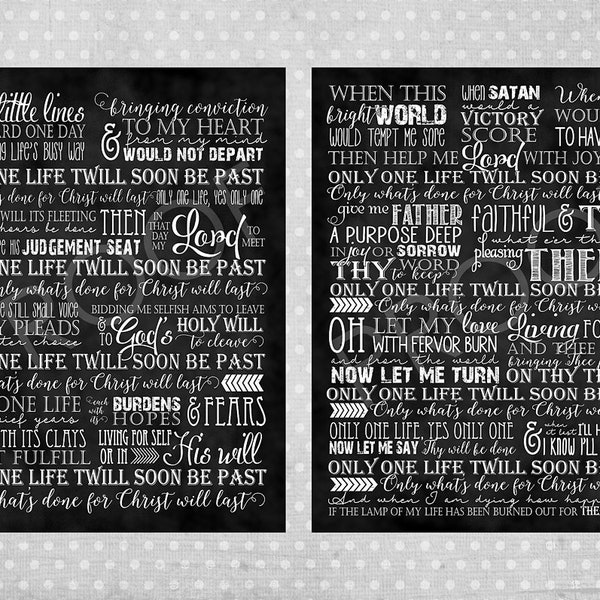 little lines
bringing conviction
ARD ONE DAY
TO MY HEART
& from my mind
NG LIFE'S BUSY WAY
WOULD NOT DEPART
NE LIFE TWILL SOON BE PAST
's done for Christ will last ~ only one life, yes only one
WILL ITS FLEETING
hours be done
THEN IN THAT DAY MY Lord TO MEET
re his JUDGEMENT SEAT
NE LIFE TWILL SOON BE PAST
nly what's done for Christ will last
HE STILL SMALL VOICE
BIDDING ME SELFISH AIMS TO LEAVE
Y PLEADS
& TO God's HOLY WILL to cleave
tter choice
NE LIFE TWILL SOON BE PAST
hat's done for Christ will last
ONE LIFE each with its BURDENS HOPES & FEARS
brief years
TH ITS CLAYS
LIVING FOR SELF OR IN His will
T FULFILL
NE LIFE TWILL SOON BE PAST
hat's done for Christ will last
WHEN THIS
bright WORLD
WOULD TEMPT ME SORE
when SATAN
would a
VICTORY
SCORE
When
WOU
TO HAV
THEN HELP ME Lord WITH JOY
ONLY ONE LIFE, TWILL SOON BE
Only what's done for Christ will last
give me FATHER
A PURPOSE DEEP
in joy or SORROW
THY WORD
to keep
FAITHFUL & T
what e'er th
pleasing THEE
ONLY ONE LIFE, TWILL SOON BE
Only what's done for Christ wi
OH LET MY love
WITH FERVOR BURN
and from the world
NOW LET ME TURN
Living FO
AND THEE
bringing Thee p
ON THY T
ONLY ONE LIFE, TWILL SOON BE
Only what's done for Christ wi
ONLY ONE LIFE, YES ONLY ONE
NOW LET ME SAY Thy will be done
& when at last I'LL H
I KNOW I'LL
ONLY ONE LIFE, TWILL SOON BE
Only what's done for Christ wi
And when I am dying how happ
IF THE LAMP OF MY LIFE HAS BEEN BURNED OUT FOR THE